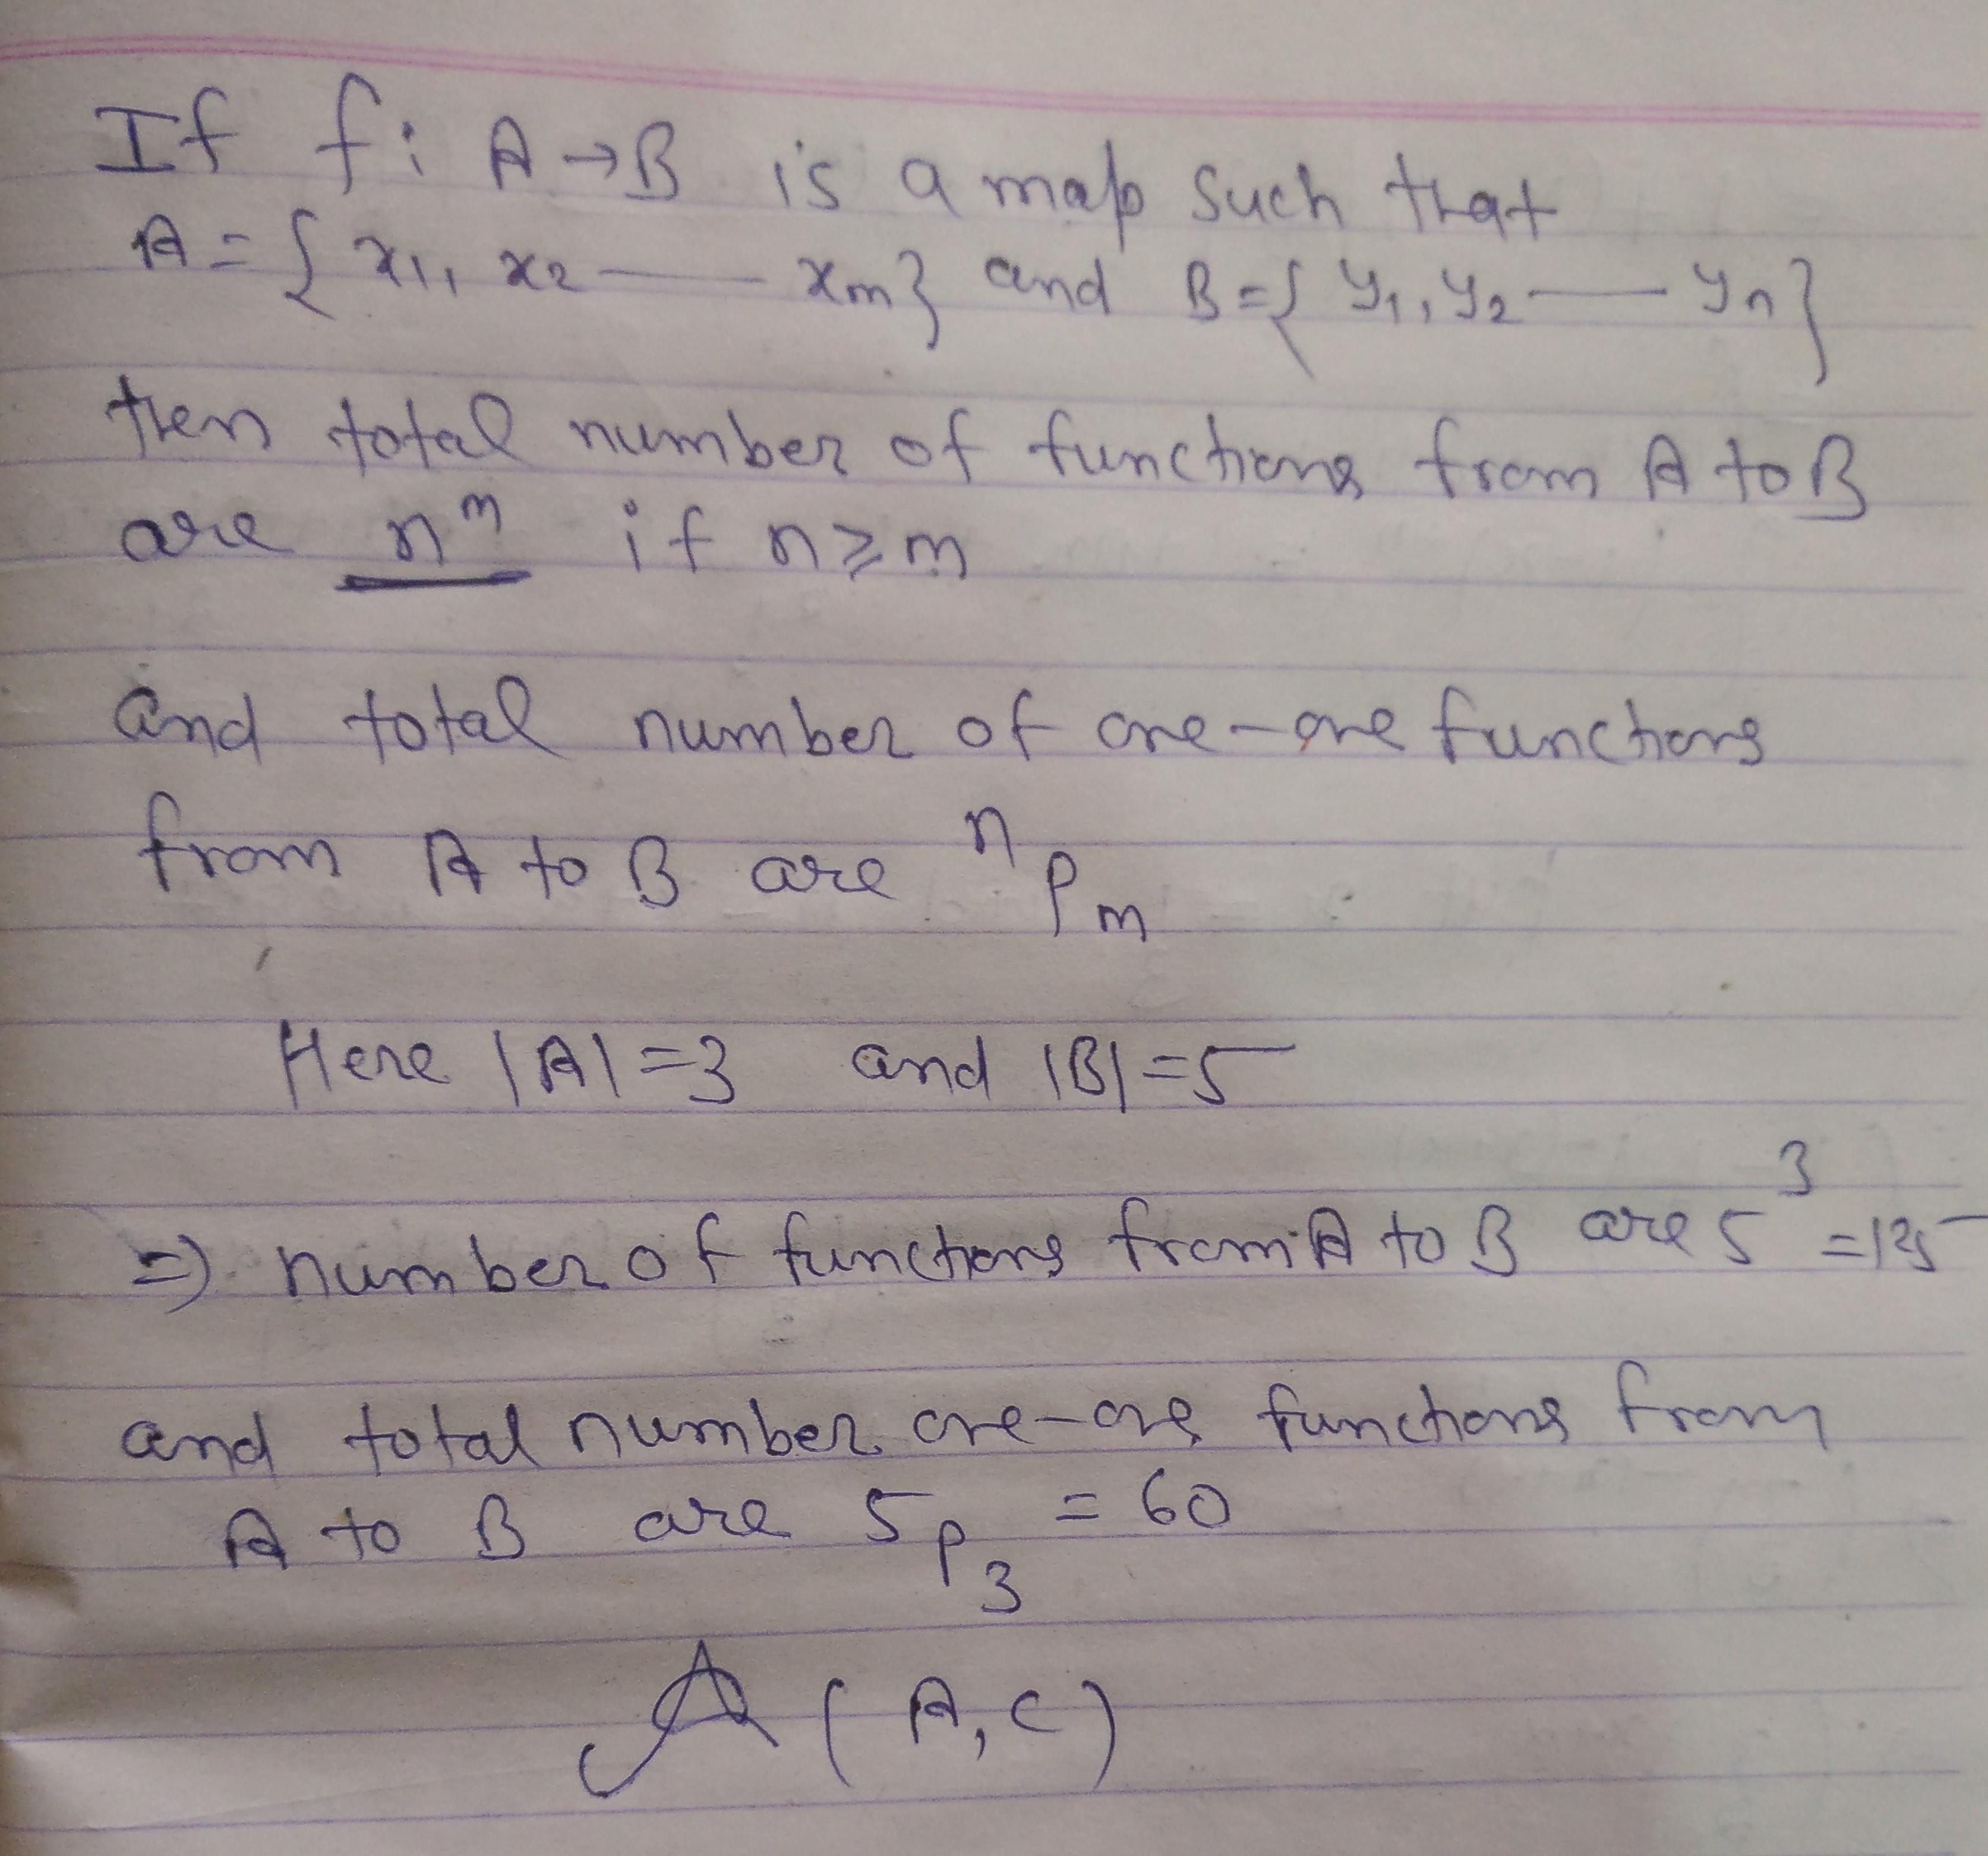 If f: A→B is a map such that
A = { x1, x2 —— xm} and B={ y1, y2 —— yn}
then total number of functions from A to B
are n^m if n ≥ m
and total number of one-one functions
from A to B are nPm
Here |A| = 3 and |B| = 5
⇒ number of functions from A to B are 5^3 = 125
and total number one-one functions from
A to B are 5P3 = 60
(A, C)